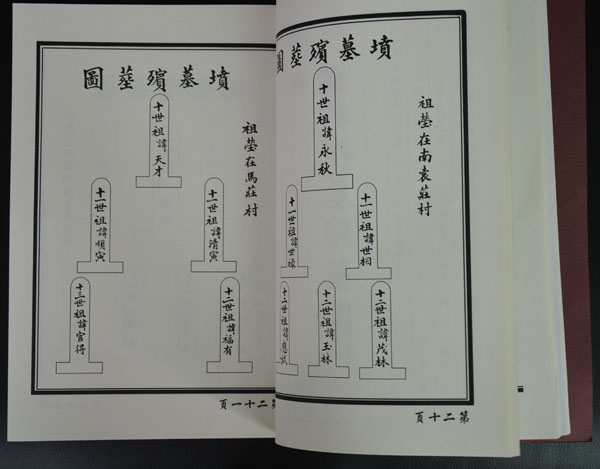 墳墓殯塟圖
祖塋在南袁莊村
十世祖諱永秋
十一世祖諱世相
十一世祖諱世禄
十二世祖諱茂林
十二世祖諱玉林
十二世祖諱
第二十頁
墳墓殯塟圖
祖塋在馬莊村
十世祖諱天才
十一世祖諱清寅
十一世祖諱順寅
十二世祖諱福有
十三世祖諱官得
第二十一頁